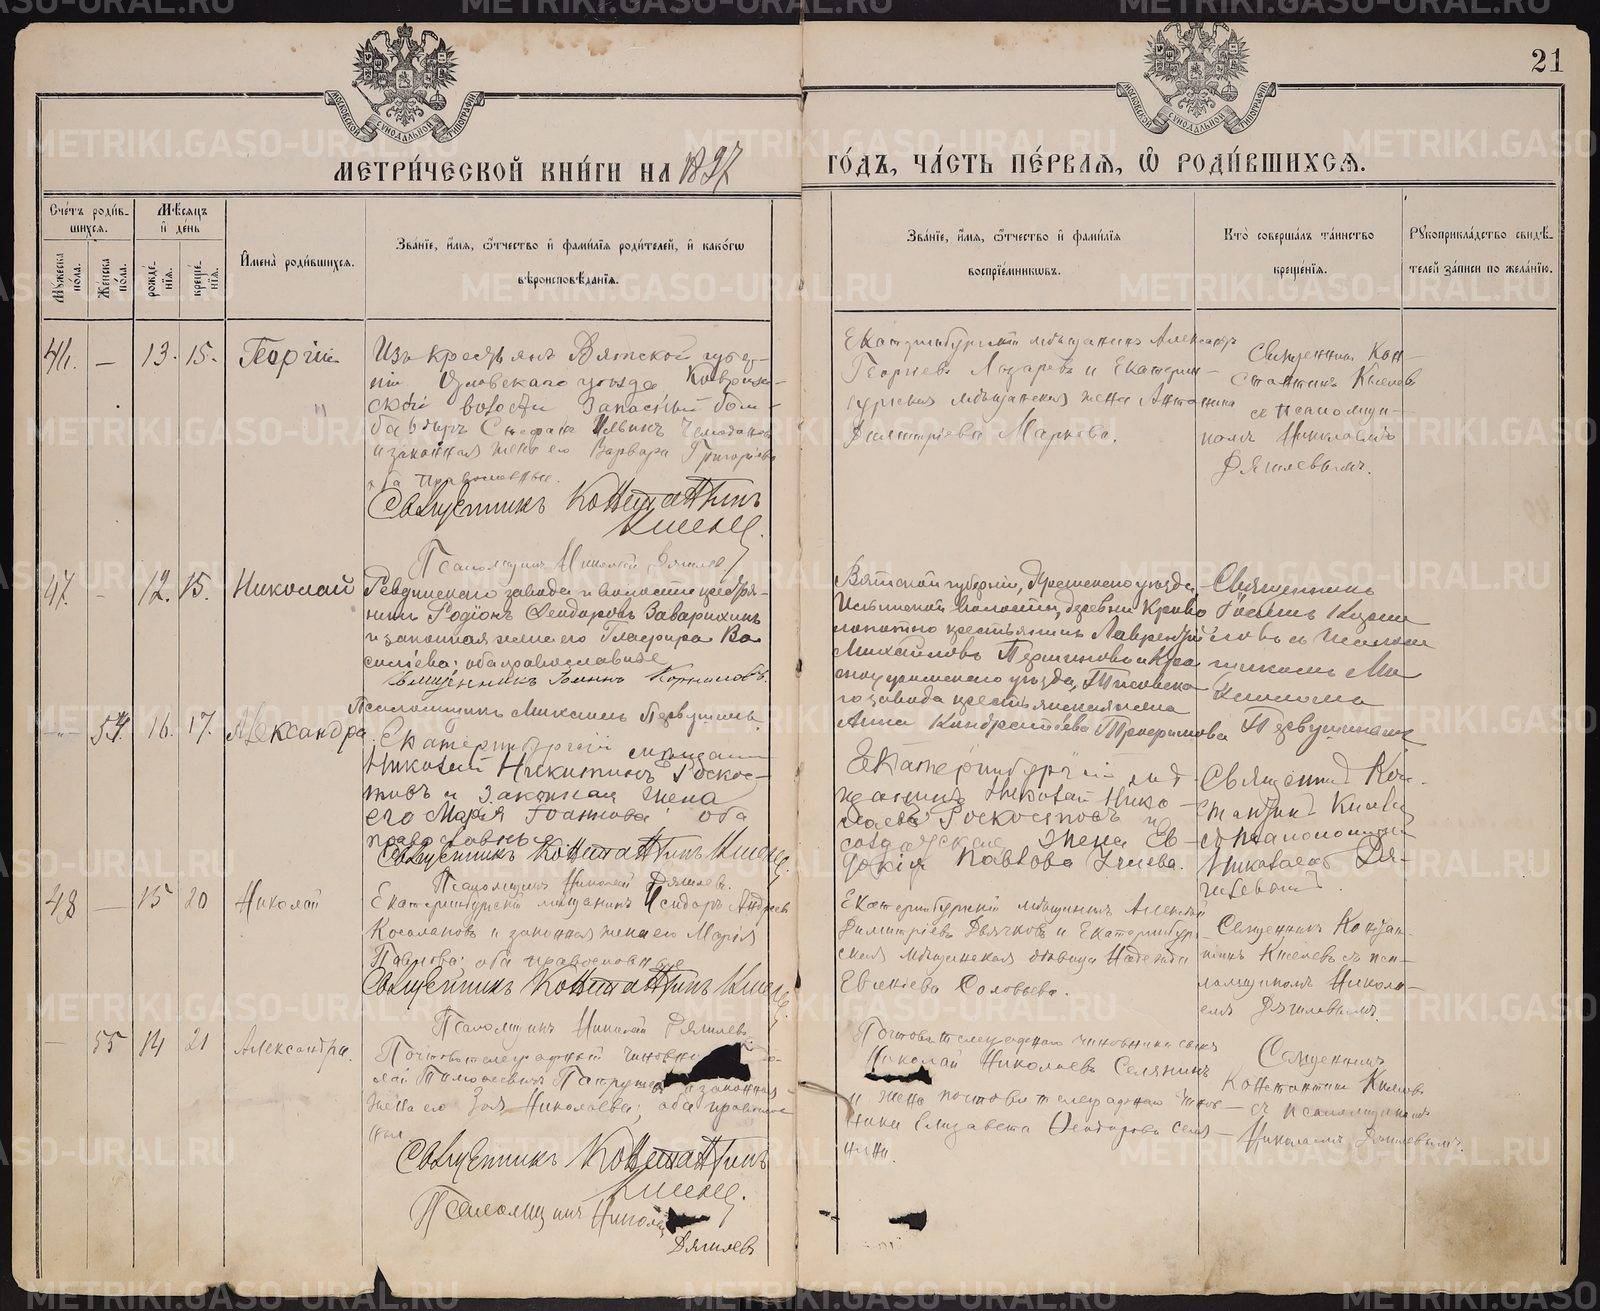 21
МОСКОВСКОЙ СѴНОДАЛЬНОЙ ТИПОГРАФІИ
МОСКОВСКОЙ СѴНОДАЛЬНОЙ ТИПОГРАФІИ
МЕТРИ́ЧЕСКОЙ КНИ́ГИ НА 1897
ГО́ДЪ, ЧА́СТЬ ПЕ́РВАЯ, Ѡ РОДИ́ВШИХСЯ.
Сче́тъ роди́в-
шихся.
Мѣ́сяцъ
и де́нь
Му́жеска по́ла.
Же́нска по́ла.
рожде́-
нія.
креще́-
нія.
Имена̀ роди́вшихся.
Зва́ніе, и́мя, ѻ́тчество и фами́лія роди́телей, и како́гѡ
вѣроисповѣ́данія.
Зва́ніе, и́мя, ѻ́тчество и фами́лія
воспріе́мниковъ.
Кто̀ соверша́лъ та́инство
креще́нія.
Рукоприкла́дство свидѣ́-
телей за́писи по жела́нію.
46. — 13. 15. Георгій
Изъ крестьянъ Вятской губер-
ніи Орловскаго уѣзда
ской волости Запасный бом-
бардиръ Стефанъ Ильинъ
и законная жена его Варвара Григорьева
оба православные.
Священникъ Константинъ
Киселевъ
Псаломщикъ Николай Дягилев
Екатеринбургскій мѣщанинъ Александръ
Георгіевъ Лазаревъ и Екатерин-
бургская мѣщанская жена Антонина
Димитріева Маркова.
Священникъ Кон-
стантинъ Киселевъ
съ псаломщи-
комъ Николаемъ
Дягилевымъ.
47. - 12. 15. Николай
Ревдинскаго завода и волости крестья-
нинъ Родіонъ Ѳеодоровъ Заварихинъ
и законная жена его Глафира Ва
сильева; оба православные
Священникъ Іоаннъ Корниловъ.
Псаломщикъ Михаилъ Первушинъ.
Вятской губерніи, уѣзда,
волости, деревни
крестьянинъ Лаврентій
Михайловъ и Кра
сноуфимскаго уѣзда,
завода крестьянская жена
Анна Кондратьева Трофимова
Священникъ
Іоаннъ Корни
ловъ съ псалом
щикомъ Ми
хаиломъ
Первушинымъ
— 54 16. 17. Александра
Екатеринбургскій мѣщанин
Николай Никитинъ Роскос-
повъ и законная жена
его Марія Іоаннова оба
православные
Священникъ Константинъ Киселев
Псаломщикъ Николай Дягилевъ.
Екатеринбургскій мѣ-
щанинъ Николай Нико-
лаевъ Роскосповъ и
солдатская жена Ев-
докія Павлова
Священник Кон-
стантин Киселев
съ псаломщик
Николаем Дя-
гилевым.
48 — 15 20 Николай
Екатеринбургскій мѣщанинъ Исидоръ Андреев
и законная жена его Марія
Павлова; оба православные
Священникъ Константинъ Киселев
Псаломщикъ Николай Дягилевъ
Екатеринбургскій мѣщанинъ Алексѣй
Димитріевъ Дьячковъ и Екатеринбург-
ская мѣщанская дѣвица Надежда
Евгеніева Соловьева.
Священникъ Констан-
тинъ Киселевъ съ пса-
ломщикомъ Никола-
емъ Дягилевымъ.
— 55 14 21 Александра.
Почтово-телеграфный чиновни
лай Тимоѳеевичъ и законная
жена его Зоя Николаева; оба православ
ные
Священникъ Константинъ
Киселев.
Псаломщикъ Николай
Дягилевъ
Почтово-телеграфнаго чиновника сынъ
Николай Николаевъ Селянинъ
и жена почтово-телеграфнаго чинов-
ника Елизавета Ѳеодорова Селя-
нина.
Священникъ
Константинъ Киселевъ
съ псаломщикомъ
Николаемъ Дягилевымъ.
METRIKI.GASO-URAL.RU